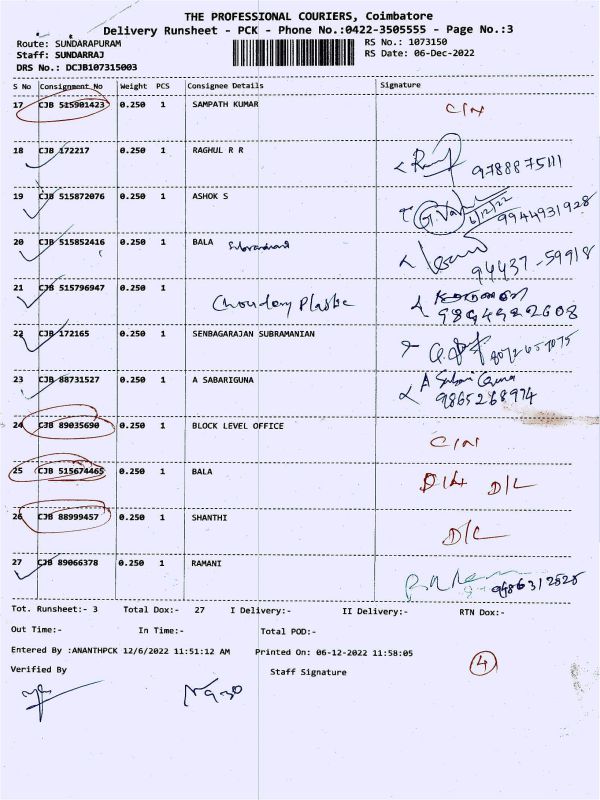 THE PROFESSIONAL COURIERS, Coimbatore
Delivery Runsheet - PCK - Phone No.:0422-3505555 - Page No.:3
Route: SUNDARAPURAM
RS No.: 1073150
Staff: SUNDARRAJ
RS Date: 06-Dec-2022
DRS No.: DCJB107315003
S No Consignment No Weight PCS Consignee Details Signature
17 CJB 515901423 0.250 1 SAMPATH KUMAR C/N
18 CJB 172217 0.250 1 RAGHUL R R 9788875111
19 CJB 515872076 0.250 1 ASHOK S 6/12/22 9944931928
20 CJB 515852416 0.250 1 BALA 94437-59918
21 CJB 515796947 0.250 1 Choudery Plastic 9894982608
22 CJB 172165 0.250 1 SENBAGARAJAN SUBRAMANIAN
23 CJB 88731527 0.250 1 A SABARIGUNA A Sabari Guna 9865268974
24 CJB 89035690 0.250 1 BLOCK LEVEL OFFICE C/N
25 CJB 515674465 0.250 1 BALA D/L D/L
26 CJB 88999457 0.250 1 SHANTHI D/L
27 CJB 89066378 0.250 1 RAMANI 9486312525
Tot. Runsheet:- 3 Total Dox:- 27 I Delivery:- II Delivery:- RTN Dox:-
Out Time:- In Time:- Total POD:-
Entered By :ANANTHPCK 12/6/2022 11:51:12 AM Printed On: 06-12-2022 11:58:05
4
Verified By Staff Signature